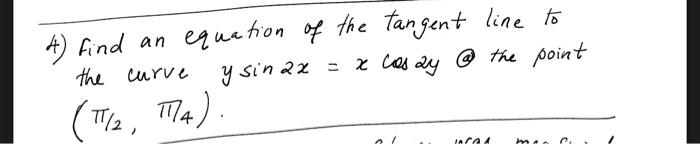 4) Find an equation of the tangent line to
the curve y sin 2x = x cos 2y @ the point
(π/2, π/4).